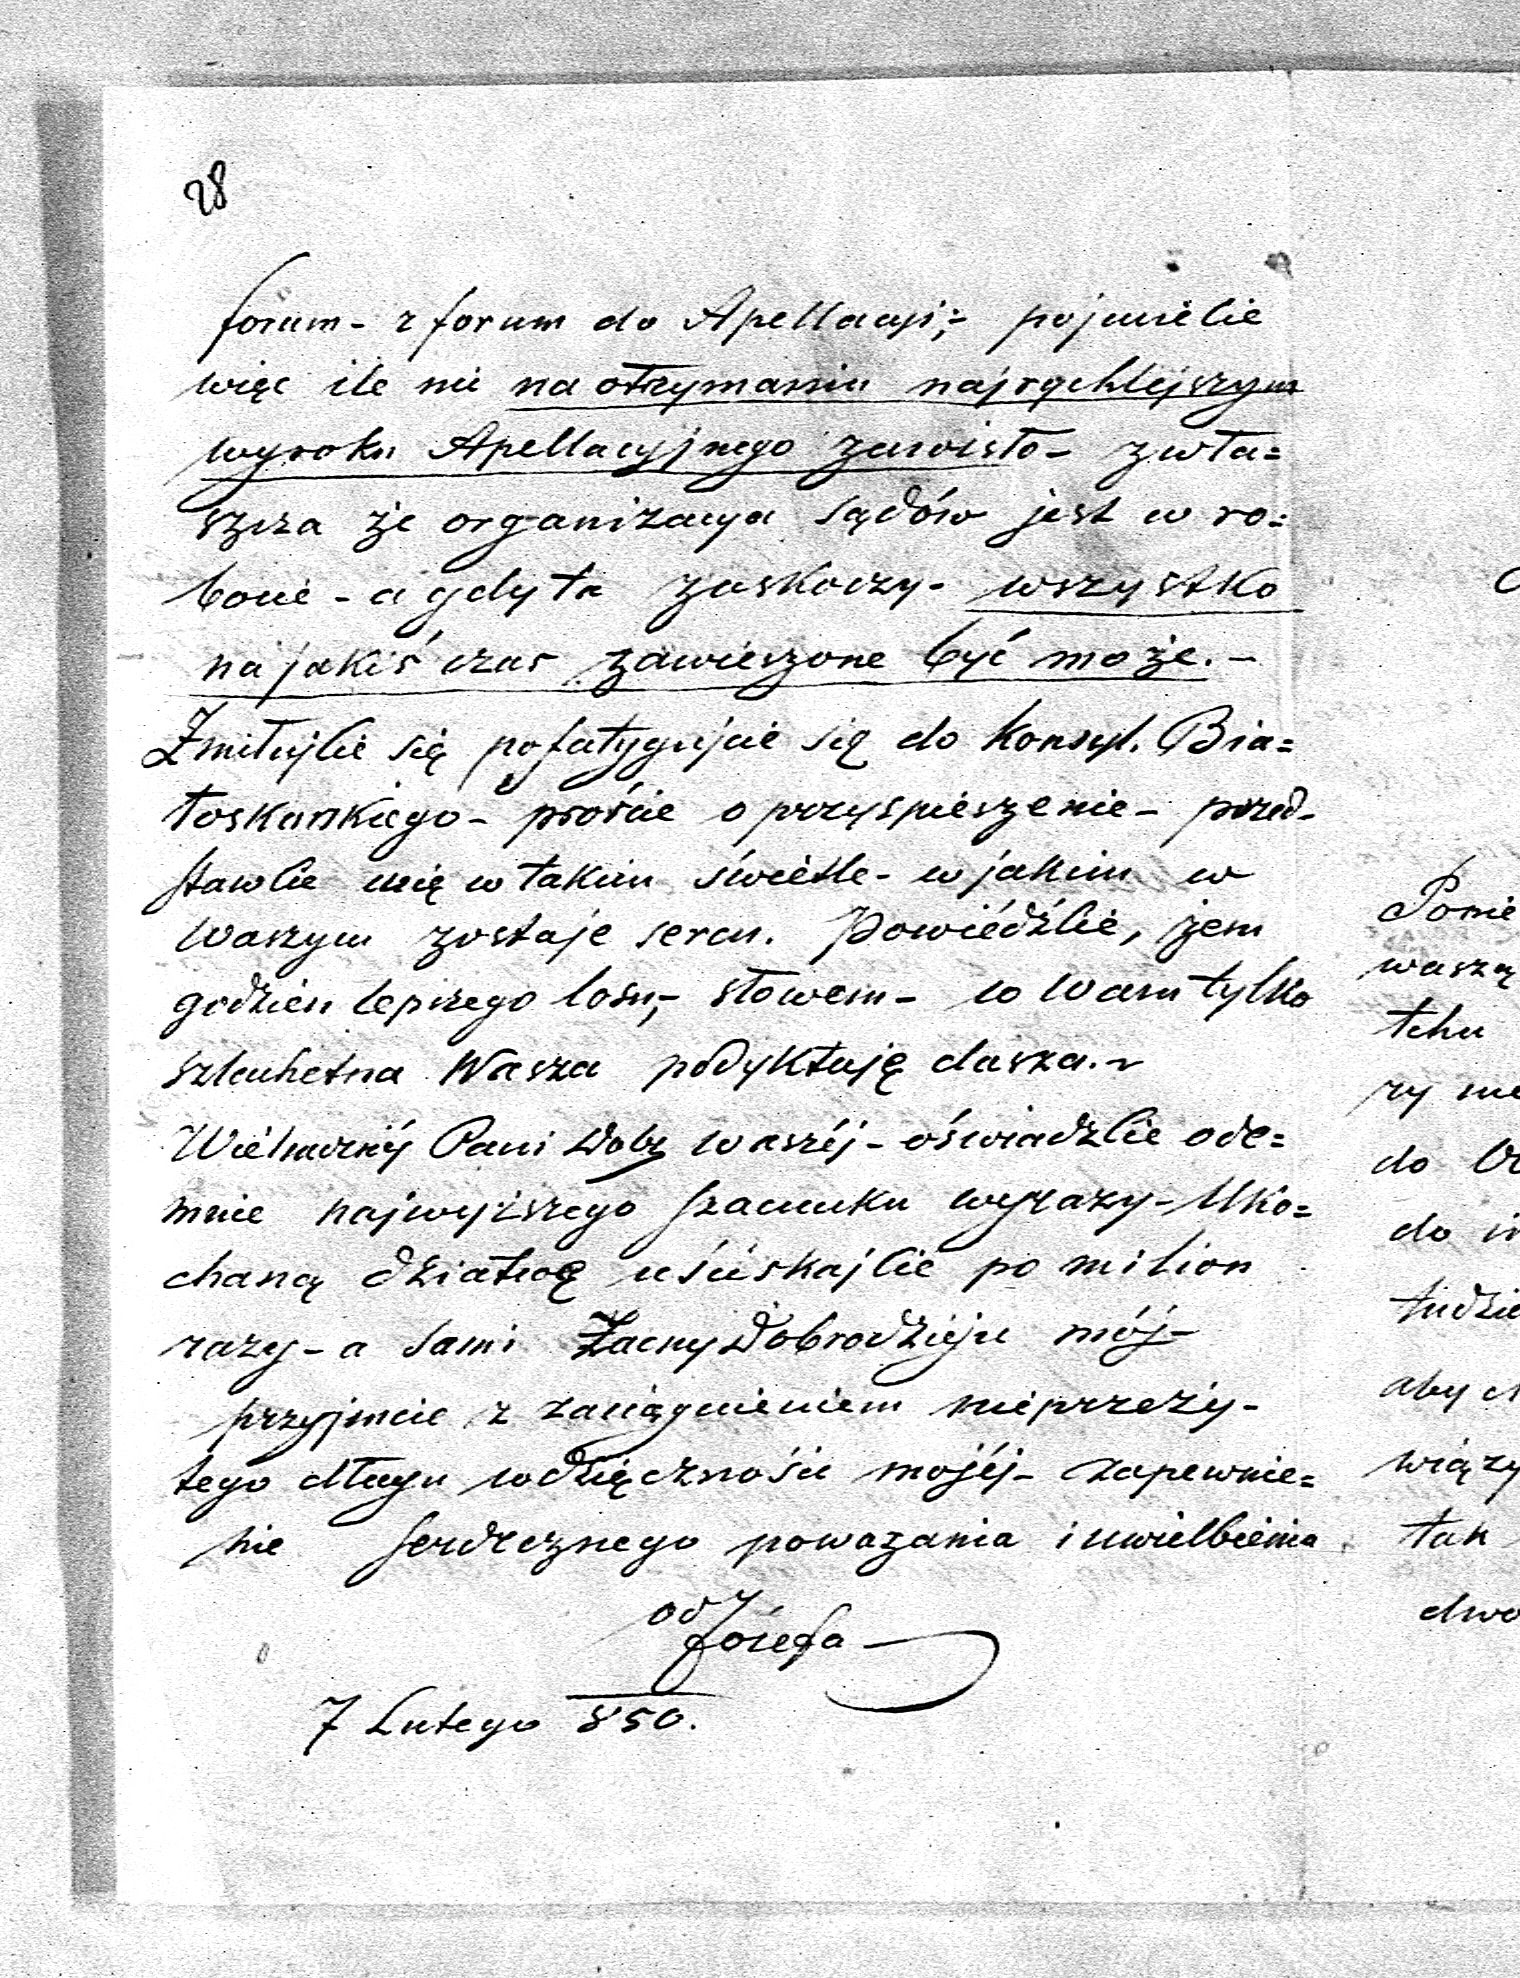 28
forum - z forum do Apellacyi; - pojmiécie
więc ile mi na otrzymaniu najrychlejszym
wyroku Apellacyjnego zawisło - zwła=
szcza że organizacya sądów jest w ro=
bocie - a gdy ta zaskoczy - wszystko
na jakiś czas zawieszone być może. -
Zmiłujcie się pofatygujcie się do Konsyl. Bia=
łoskurskiego - proście o przyspieszenie - przed-
stawcie mię w takim świetle - w jakim w
Waszym zostaje sercu. Powiédźcie, żem
godzien lepszego losu, - słowem - co Wam tylko
szlachetna Wasza podyktuję dusza. -
Wielmożnéj Pani Dobr Waszéj - oświadzcie ode=
mnie najwyższego szacunku wyrazy - Uko=
chaną dziatwę uściskajcie po milion
razy - a sami Zacny Dobrodzieju mój -
przyjmcie z zaciągnieniem nieprzeży-
tego długu wdzięczności mojéj - zapewnie=
nie serdecznego poważania i uwielbienia
od
Józefa
7 Lutego 850.
Ponie
waszą
tchu
ry
do
do
tudzie
aby
wiązy
tak
dwo